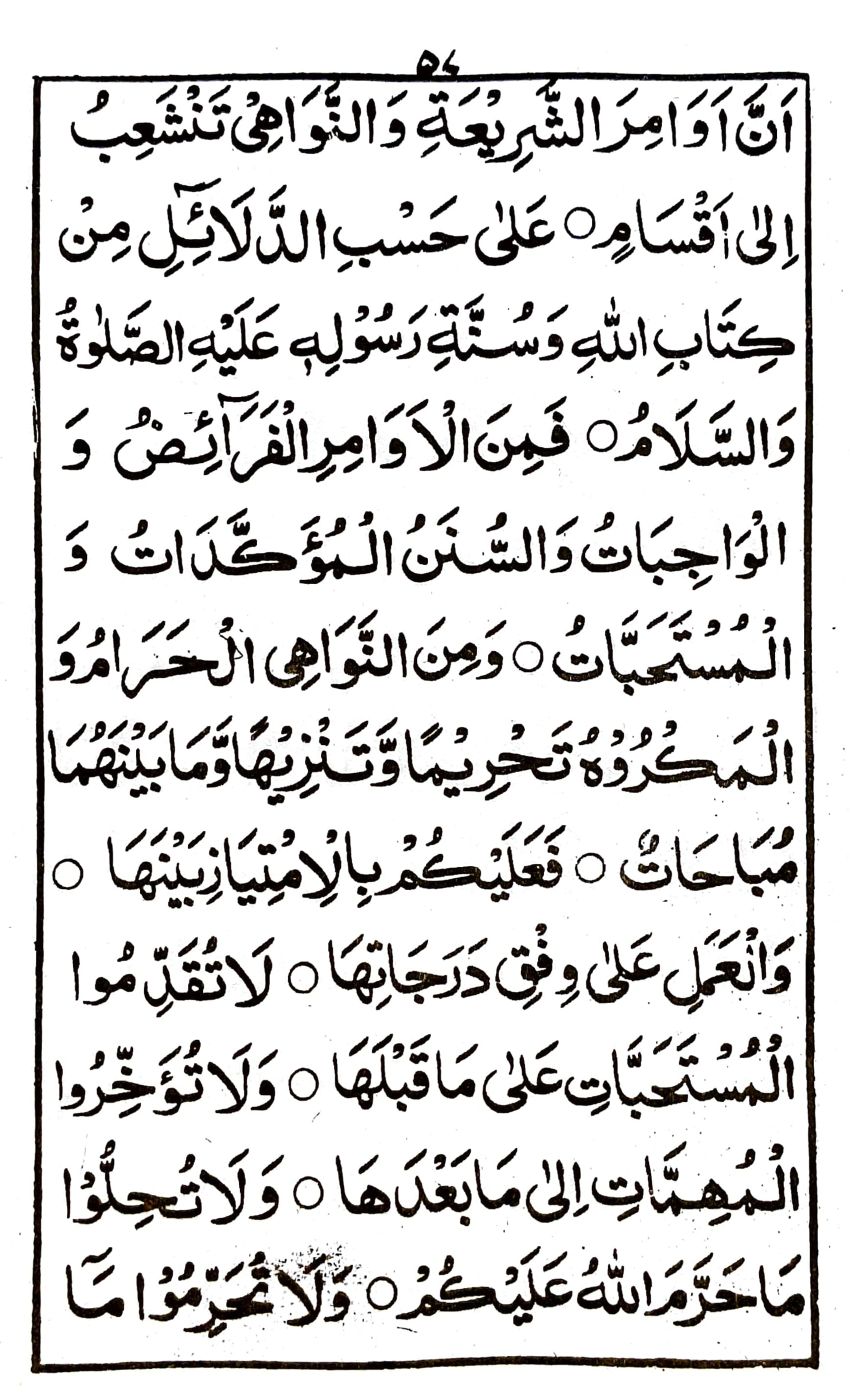 ۵۴
اَنَّ اَوَامِرَ الشَّرِيْعَةِ وَ النَّوَاهِيْ تَنْشَعِبُ
اِلٰى اَقْسَامٍ ○ عَلٰى حَسْبِ الدَّلَآئِلِ مِنْ
كِتَابِ اللهِ وَسُنَّةِ رَسُوْلِهٖ عَلَيْهِ الصَّلٰوةُ
وَالسَّلَامُ ○ فَمِنَ الْاَوَامِرِ الْفَرَآئِضُ وَ
الْوَاجِبَاتُ وَالسُّنَنُ الْمُؤَكَّدَاتُ وَ
الْمُسْتَحَبَّاتُ ○ وَمِنَ النَّوَاهِى الْحَرَامُ وَ
الْمَكْرُوْهُ تَحْرِيْمًا وَّتَنْزِيْهًا وَّمَا بَيْنَهُمَا
مُبَاحَاتٌ ○ فَعَلَيْكُمْ بِالْاِمْتِيَازِ بَيْنَهَا ○
وَالْعَمَلِ عَلٰى وِفْقِ دَرَجَاتِهَا ○ لَا تُقَدِّمُوا
الْمُسْتَحَبَّاتِ عَلٰى مَا قَبْلَهَا ○ وَلَا تُؤَخِّرُوا
الْمُهِمَّاتِ اِلٰى مَا بَعْدَهَا ○ وَلَا تُحِلُّوْا
مَا حَرَّمَ اللهُ عَلَيْكُمْ ○ وَلَا تُحَرِّمُوْا مَآ